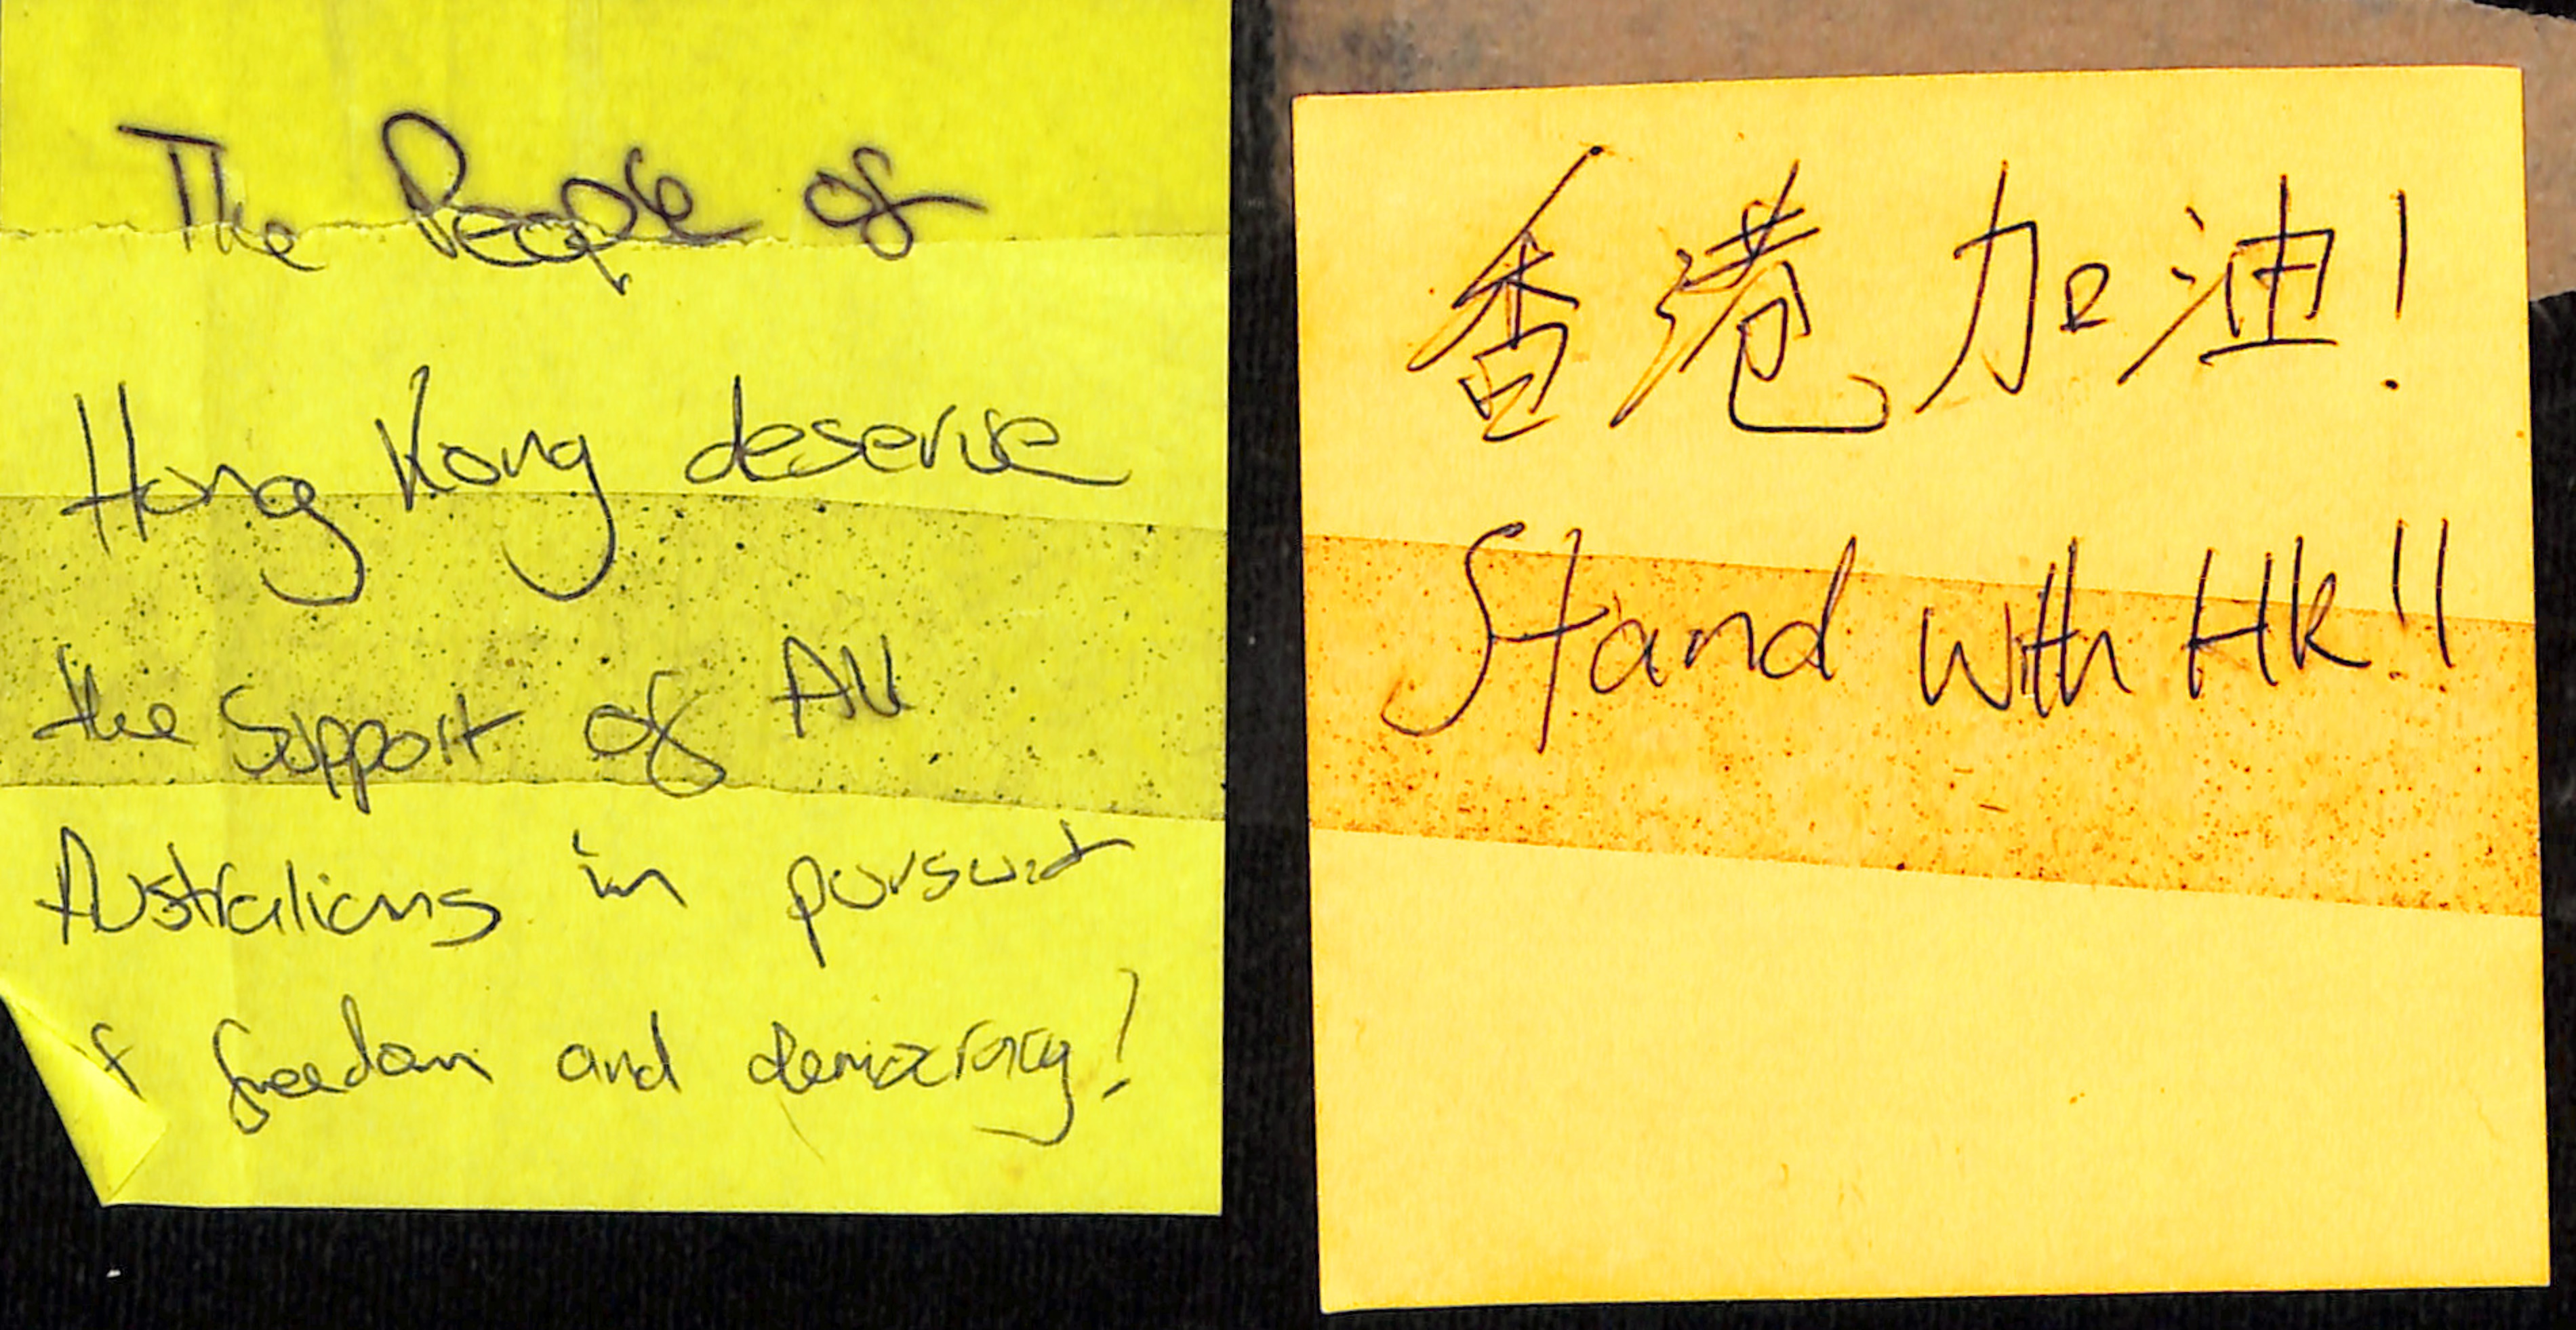 The People of
Hong Kong deserve
the Support of All
Australians in pursuit
f freedom and democracy!
香港加油!
Stand with HK!!